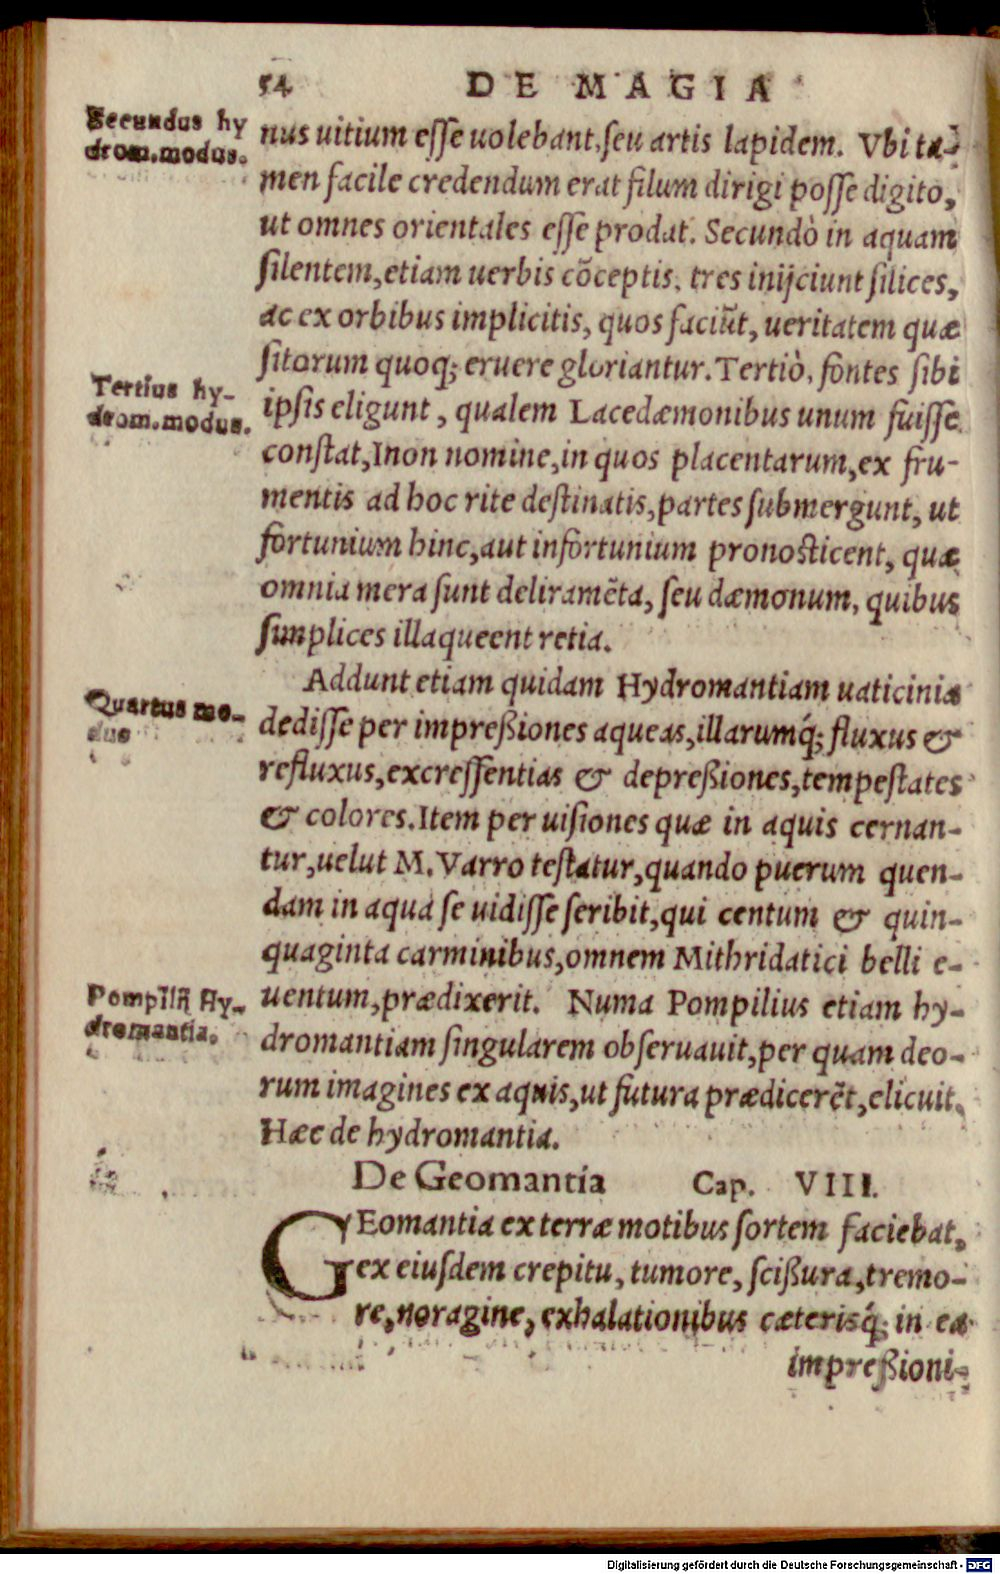 54 DE MAGIA
Secundus hy
drom.modus.
nus uitium esse uolebant, seu artis lapidem. Vbi ta-
men facile credendum erat filum dirigi posse digito,
ut omnes orientales esse prodat. Secundò in aquam
silentem, etiam uerbis cōceptis, tres inijciunt silices,
ac ex orbibus implicitis, quos faciūt, ueritatem quæ
sitorum quoq; eruere gloriantur. Tertiò, fontes sibi
Tertius hy-
drom.modus.
ipsis eligunt, qualem Lacedæmonibus unum fuisse
constat, Inon nomine, in quos placentarum, ex fru-
mentis ad hoc rite destinatis, partes submergunt, ut
fortunium hinc, aut infortunium pronosticent, quæ
omnia mera sunt deliramēta, seu dæmonum, quibus
simplices illaqueent retia.
Addunt etiam quidam Hydromantiam uaticinia
Quartus mo-
dus
dedisse per impreßiones aqueas, illarumq́; fluxus &
refluxus, excressentias & depreßiones, tempestates
& colores. Item per uisiones quæ in aquis cernan-
tur, uelut M. Varro testatur, quando puerum quen-
dam in aqua se uidisse scribit, qui centum & quin-
quaginta carminibus, omnem Mithridatici belli e-
Pompilij Hy-
dromantia.
uentum, prædixerit. Numa Pompilius etiam hy-
dromantiam singularem obseruauit, per quam deo-
rum imagines ex aquis, ut futura prædicerēt, elicuit.
Hæc de hydromantia.
De Geomantia Cap. VIII.
GEomantia ex terræ motibus sortem faciebat,
ex eiusdem crepitu, tumore, scißura, tremo-
re, uoragine, exhalationibus cæterisq́; in ea
impreßioni-
Digitalisierung gefördert durch die Deutsche Forschungsgemeinschaft - DFG